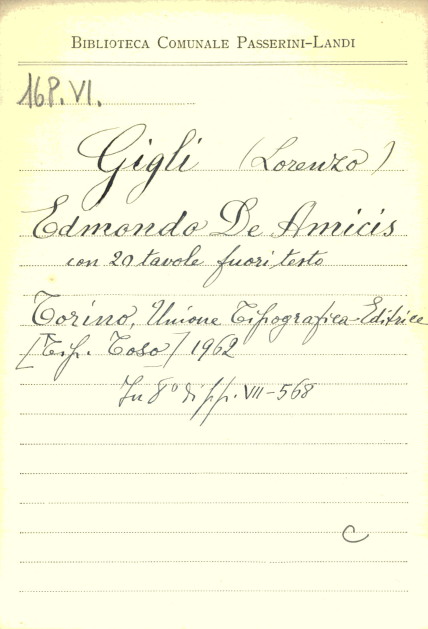 BIBLIOTECA COMUNALE PASSERINI-LANDI
16P.VI.
Gigli (Lorenzo)
Edmondo De Amicis
con 20 tavole fuori testo
Torino, Unione Tipografica-Editrice
[Tip. Toso] 1962
In 8° di pp. VII-568
C